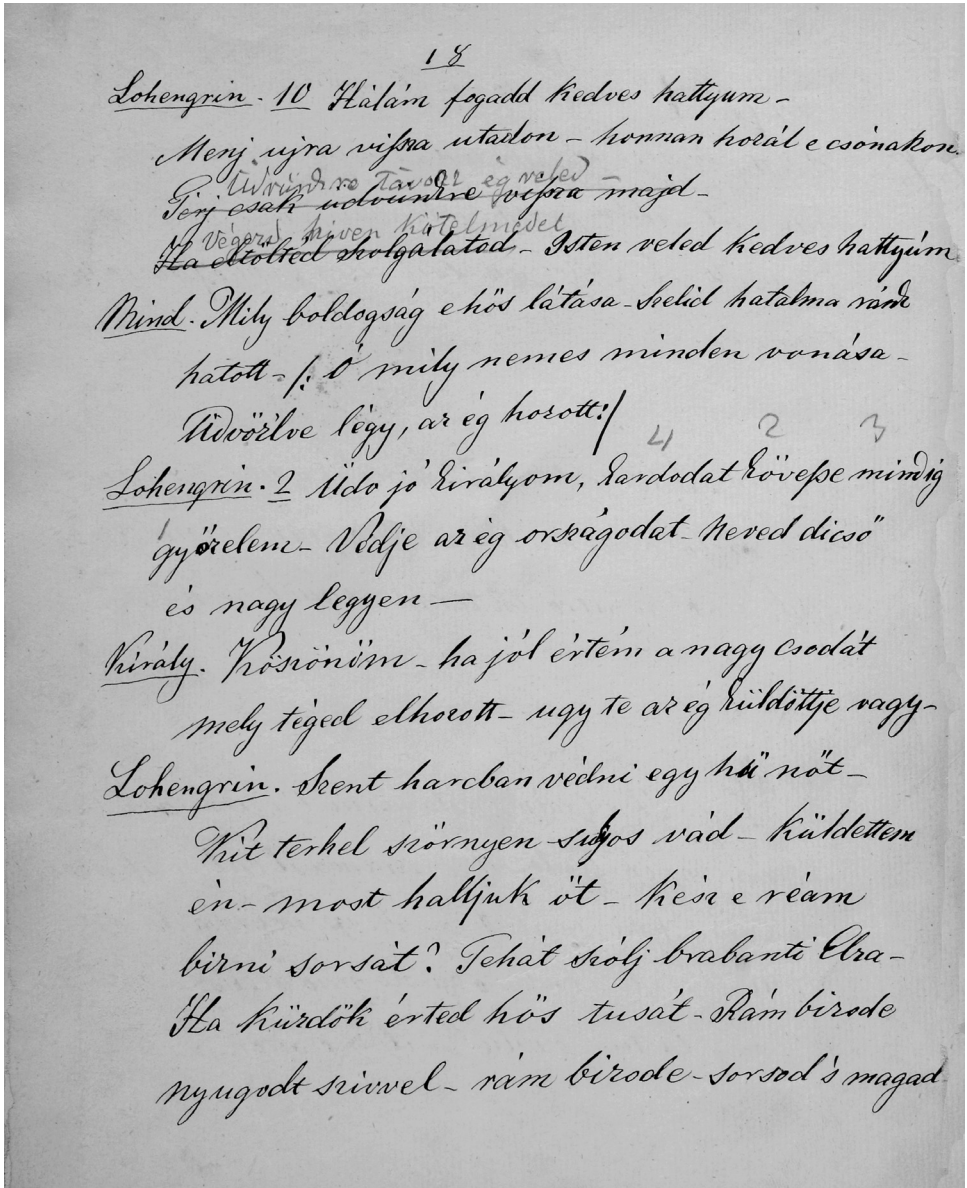 18
Lohengrin. 10 Hálám fogadd kedves hattyum –
Menj ujra vissza utadon – honnan hozál e csónakon.
Üdvünkre távozz ég veled –
Térj csak üdvünkre vissza majd –
Végezd hiven kötelmedet
Ha eltölted szolgálatod – Isten veled kedves hattyúm
Mind. Mily boldogság e hős látása – Szelid hatalma ránk
hatott – /: Ó mily nemes minden vonása –
Üdvözlve légy, az ég hozott :/
4 2 3
Lohengrin. 2 Üdv jó királyom, kardodat kövesse mindig
1
győzelem – Védje az ég országodat – Neved dicső
és nagy legyen –
Király. Köszönöm – ha jól értém a nagy csodát
mely téged elhozott – ugy te az ég küldöttje vagy –
Lohengrin. Szent harcban védni egy hű nőt –
Kit terhel szörnyen sulyos vád – küldettem
én – most halljuk őt – kész e réám
bizni sorsát? Tehát szólj brabanti Elza –
Ha küzdök érted hős tusát – Rám bizode
nyugodt szivvel – rám bizode – sorsod's magad